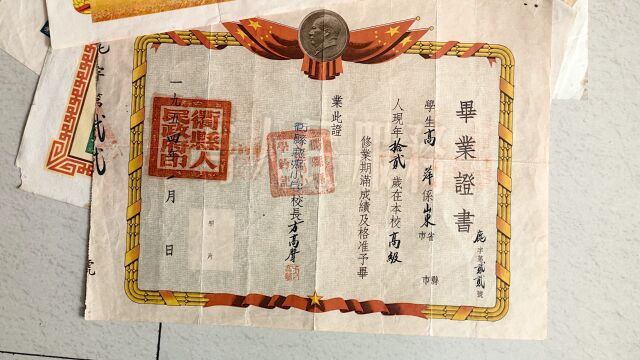 畢業證書
鹿字第貳貳號
學生高萍係山東省市 縣市
人現年拾貳歲在本校高級
修業期滿成績及格准予畢
業此證
小學校長方高聲
一九五四年 月 日
照片
衢縣人民政府印